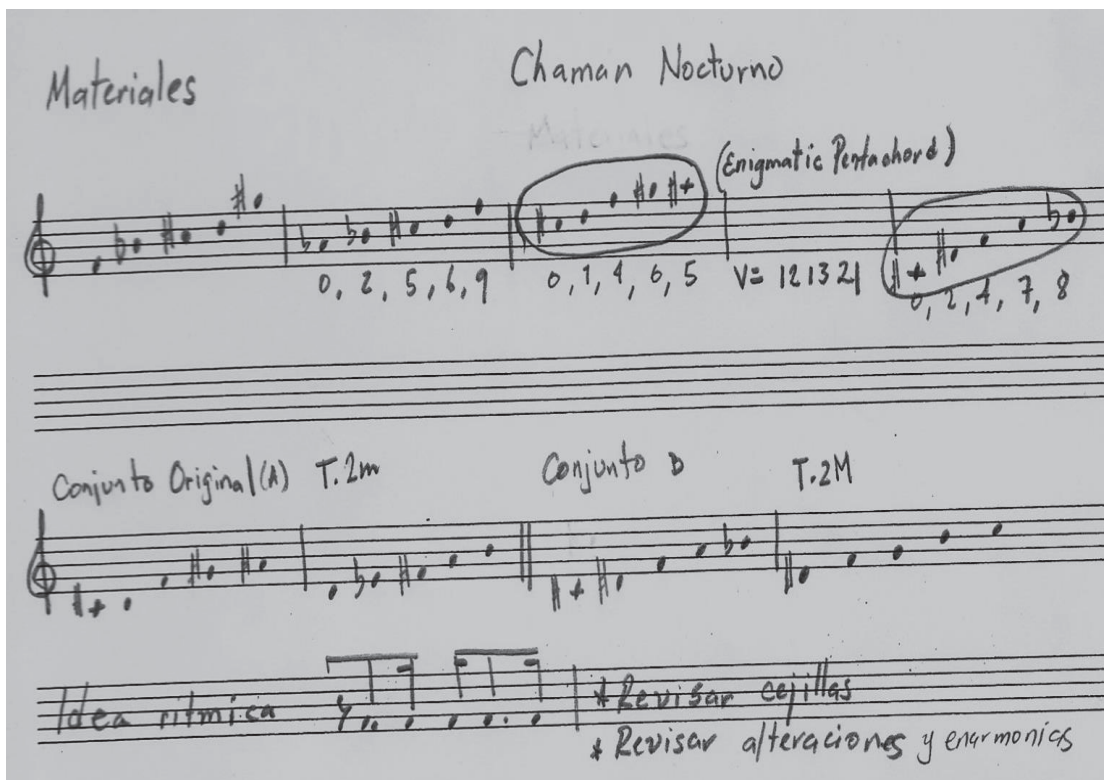 Materiales
Chaman Nocturno
Materiales
(Enigmatic Pentachord)
0, 2, 5, 6, 9 0, 1, 4, 6, 5 V= 121321 0, 2, 4, 7, 8
Conjunto Original (A) T.2m Conjunto B T.2M
Idea ritmica * Revisar cejillas
* Revisar alteraciones y enarmonias